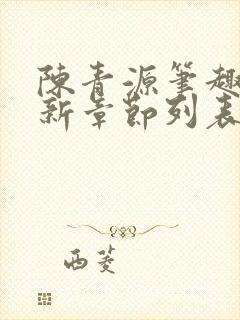 陳青源筆趣
新章節列表
西菱